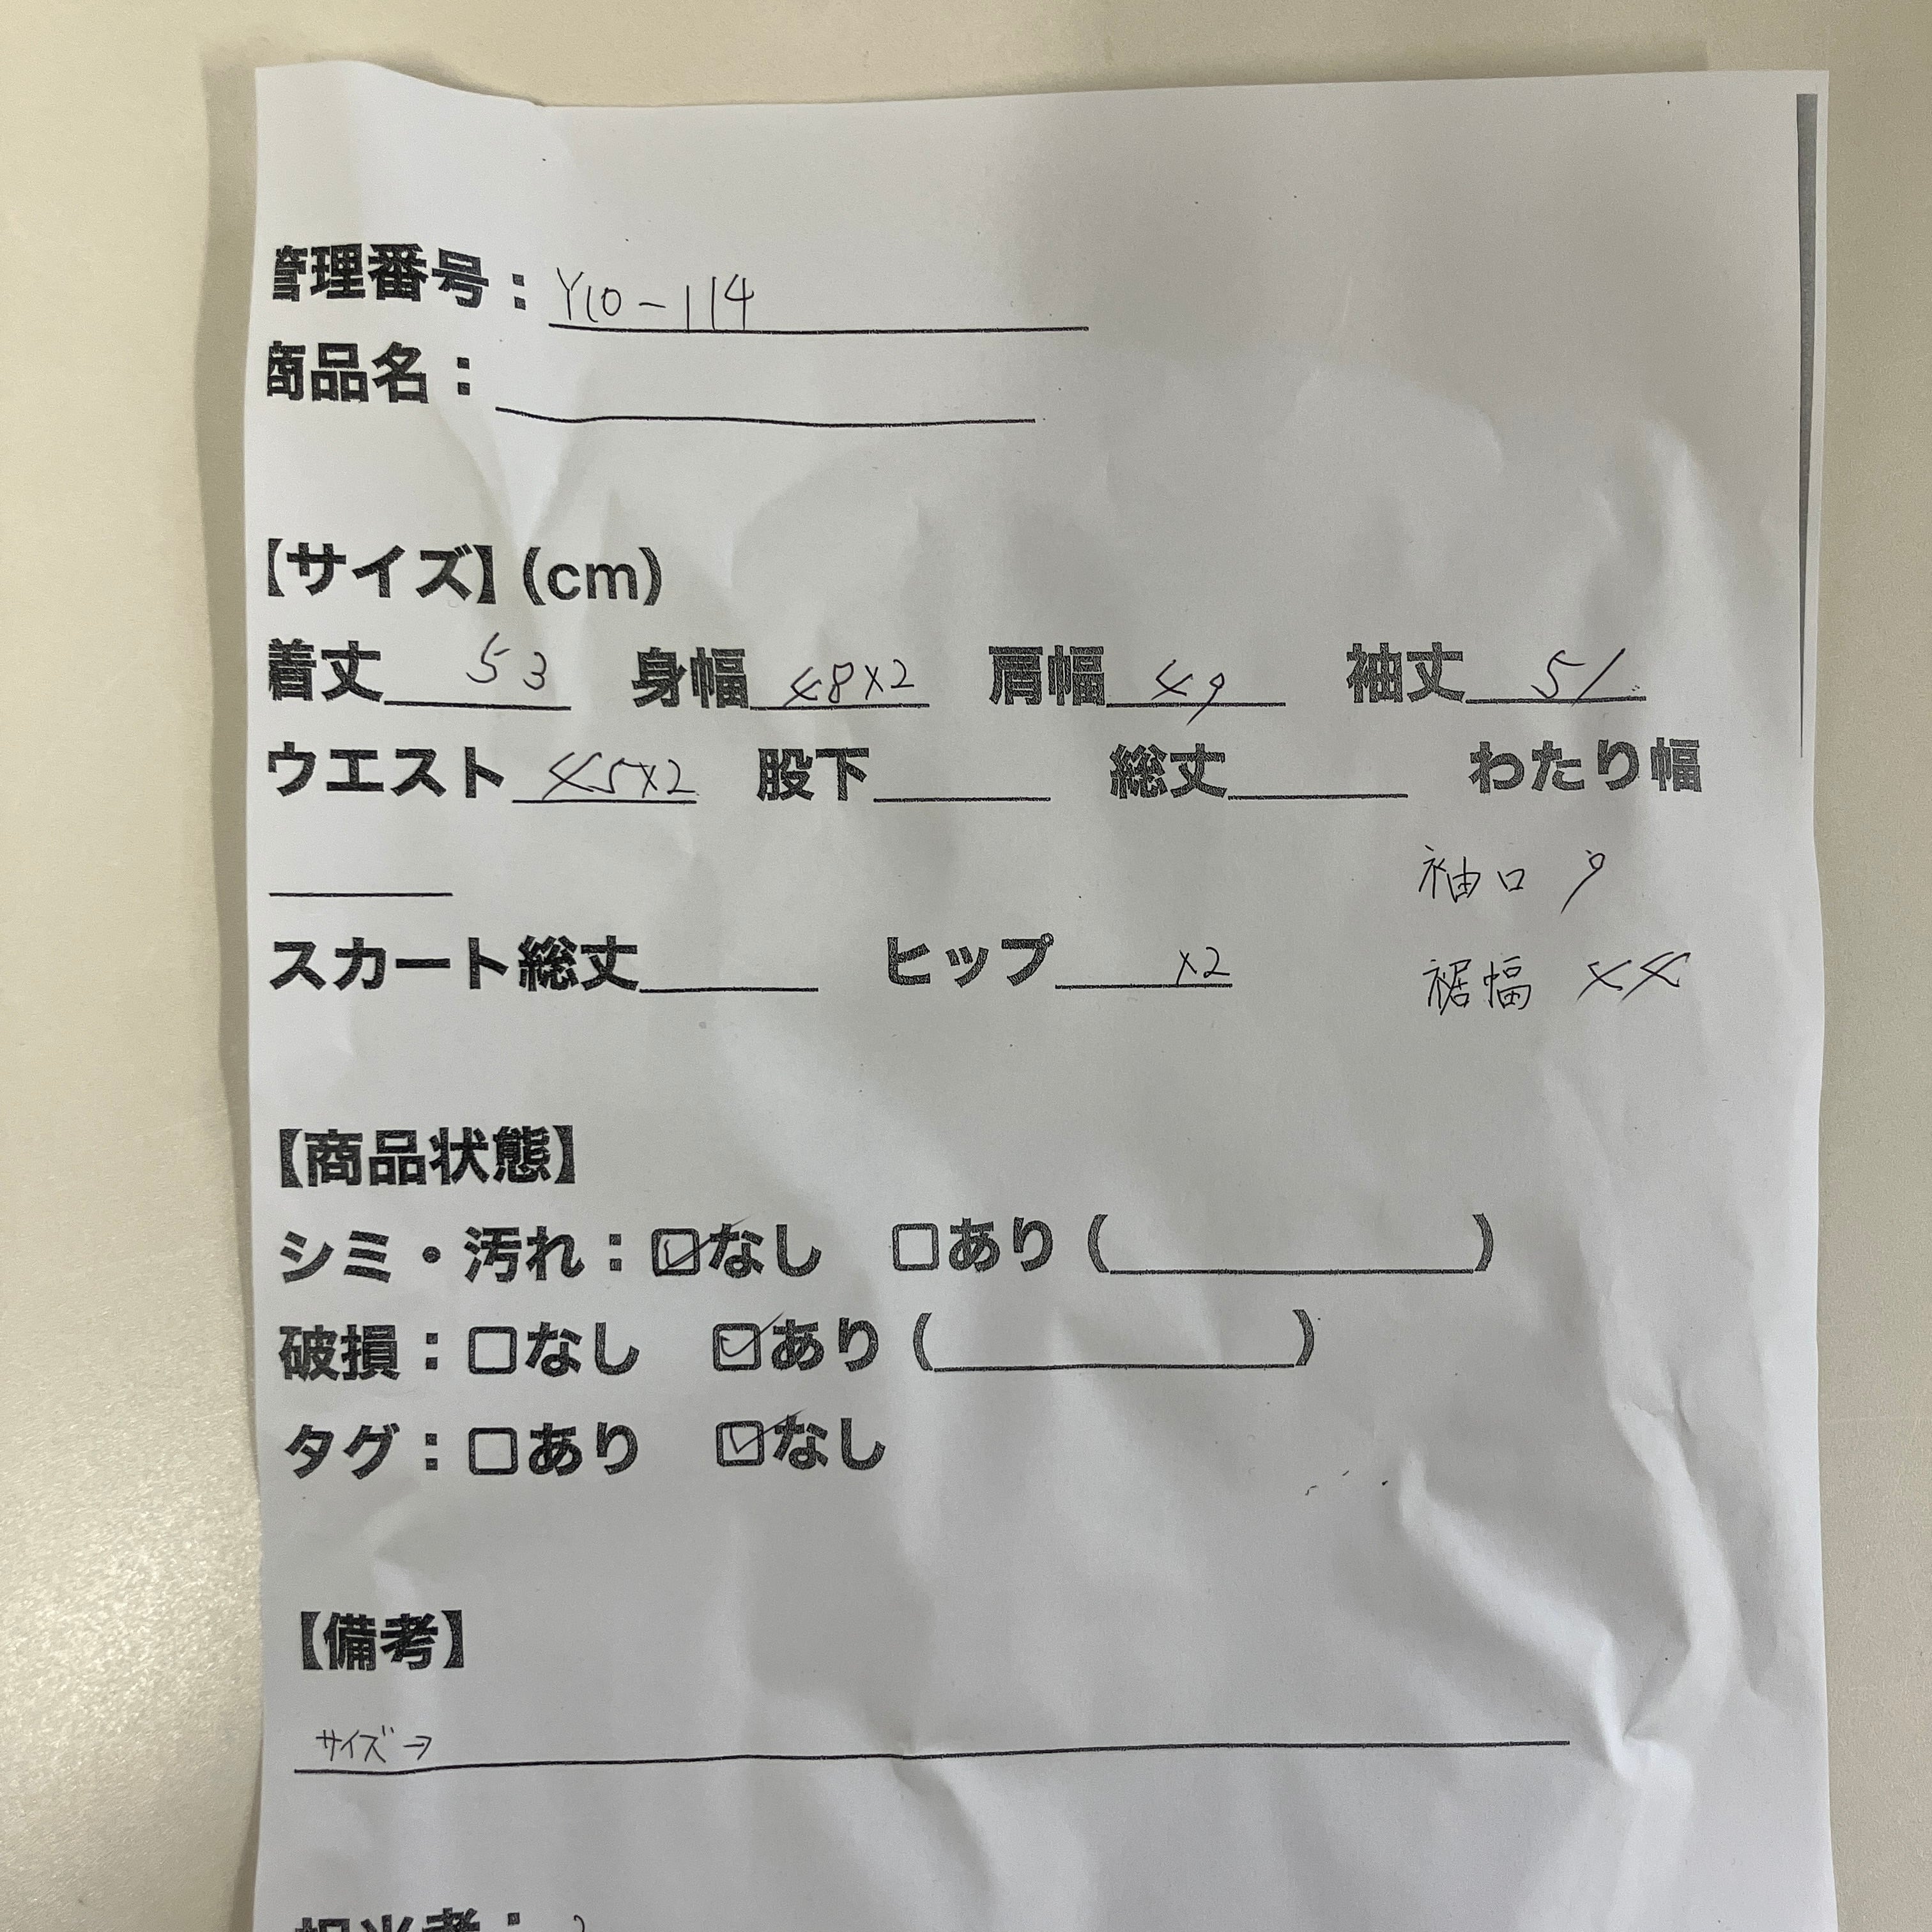 管理番号：Y10-114
商品名：
【サイズ】(cm)
着丈 53 身幅 48x2 肩幅 49 袖丈 51
ウエスト 45x2 股下 総丈 わたり幅
袖口 9
スカート総丈 ヒップ x2
裾幅 44
【商品状態】
シミ・汚れ：☑なし □あり（ ）
破損：□なし ☑あり（ ）
タグ：□あり ☑なし
【備考】
サイズ→
担当者：